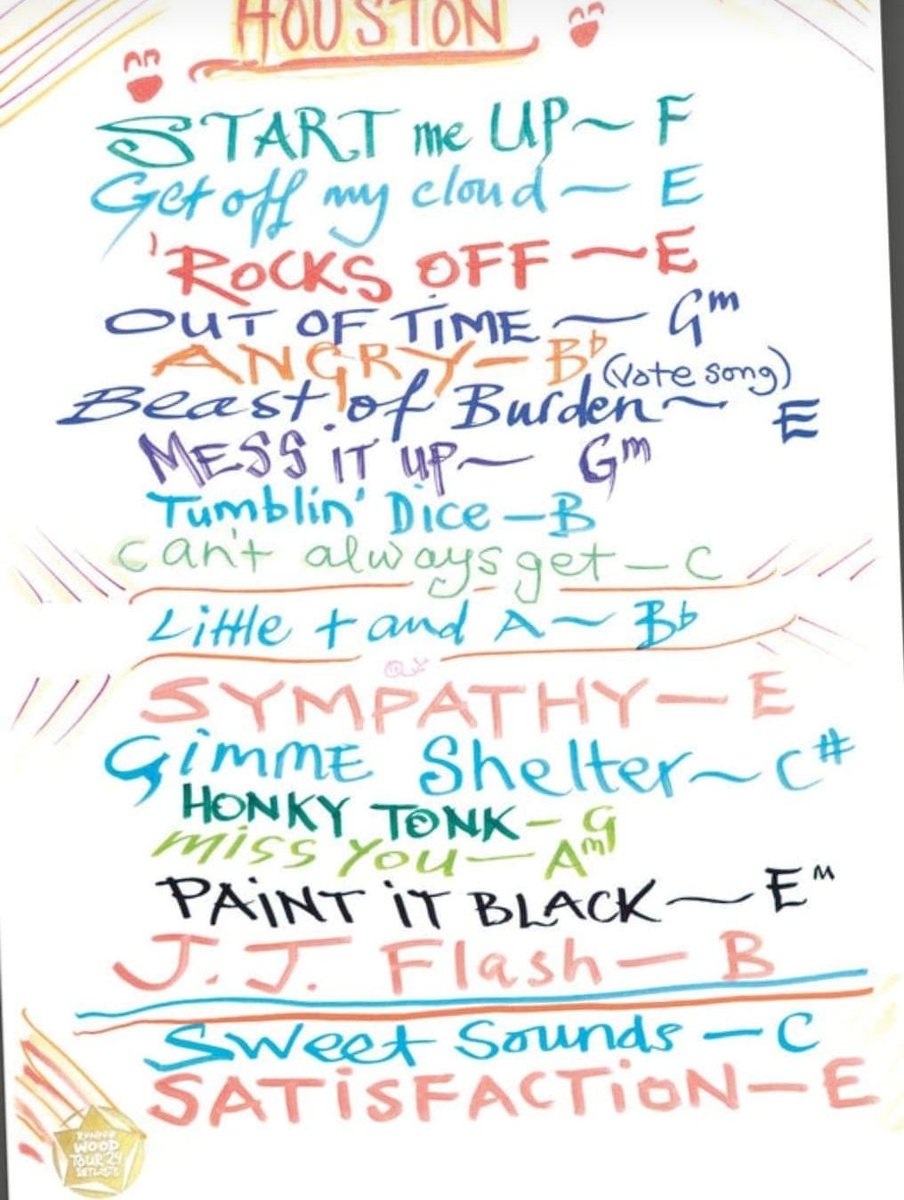 HOUSTON
START me UP ~ F
Get off my cloud ~ E
'ROCKS OFF ~ E
OUT OF TIME ~ Gm
ANGRY - Bb
(vote song)
Beast of Burden ~ E
MESS IT UP ~ Gm
Tumblin' Dice - B
can't always get - C
Little t and A ~ Bb
SYMPATHY - E
GiMME Shelter ~ C#
HONKY TONK - G
miss You - Am
PAiNT iT BLACK ~ EM
J.J. Flash - B
Sweet Sounds - C
SATiSFACTiON - E
WOOD
TOUR 24